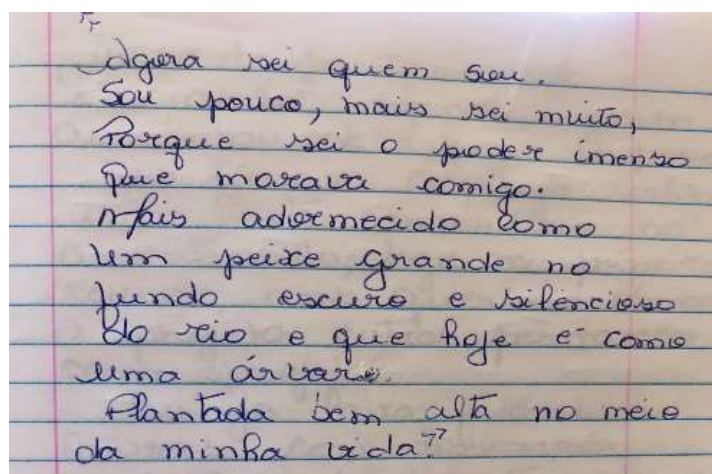 "
Agora sei quem sou.
Sou pouco, mais sei muito,
Porque sei o poder imenso
Que morava comigo.
Mais adormecido como
um peixe grande no
fundo escuro e silencioso
do rio e que hoje é como
uma árvare.
Plantada bem alta no meio
da minha vida."